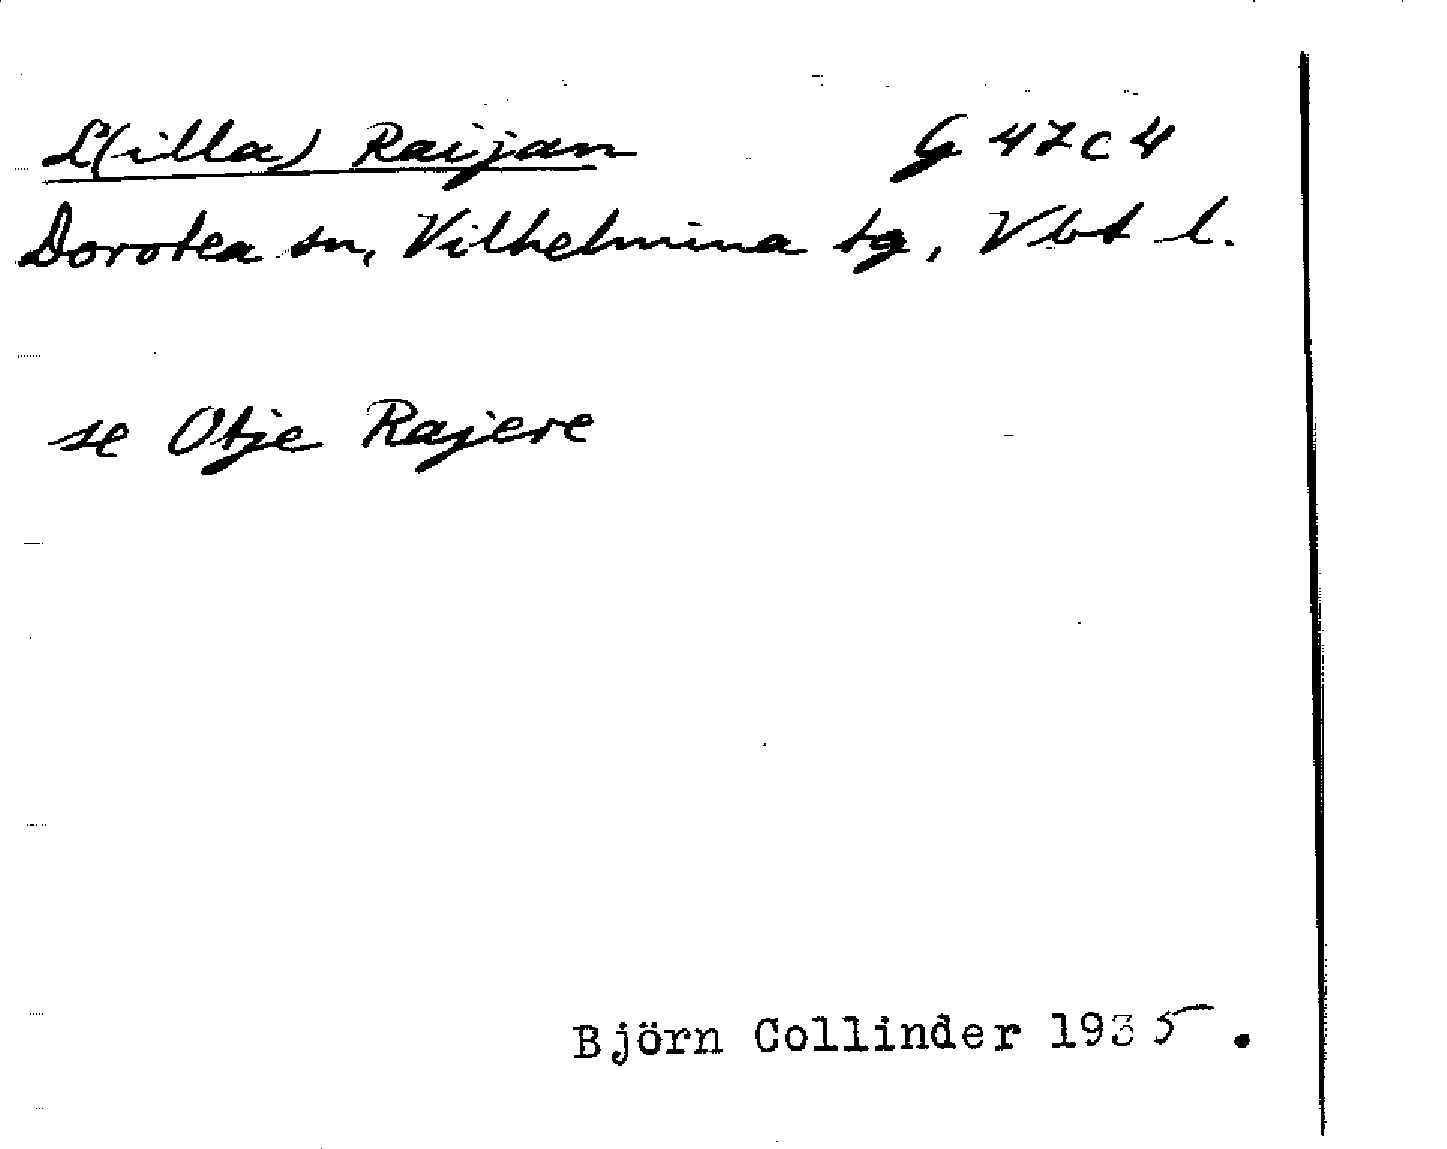 L(illa) Raijan G 47 c 4
Dorotea sn, Vilhelmina tg, Vbt l.
se Otje Rajere
Björn Collinder 1935.